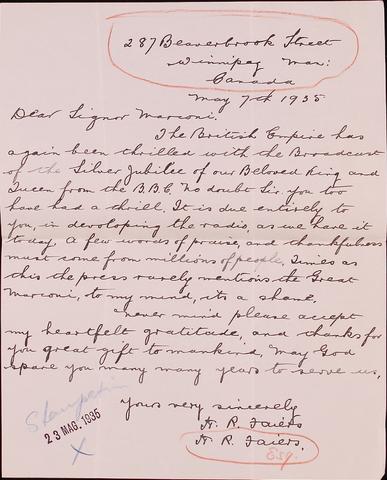 287 Beaverbrook Street
Winnipeg Man:
Canada
May 7th 1935
Dear Signor Marconi.
The British Empire has
again been thrilled with the Broadcast
of the Silver Jubilee of our Beloved King and
Queen from the B.B.C. No doubt Sir, you too
have had a thrill. It is due entirely to
you, in devoloping the radio, as we have it
today. A few words of praise, and thankfulness
must come from millions of people. Times as
this the press rarely mentions the Great
Marconi, to my mind, its a shame,
never mind please accept
my heartfelt gratitude, and thanks for
you great gift to mankind, May God
spare you many many years to serve us,
Yours very sincerely
H. R. Faiers
H. R. Faiers.
Esq.
23 MAG. 1935
X